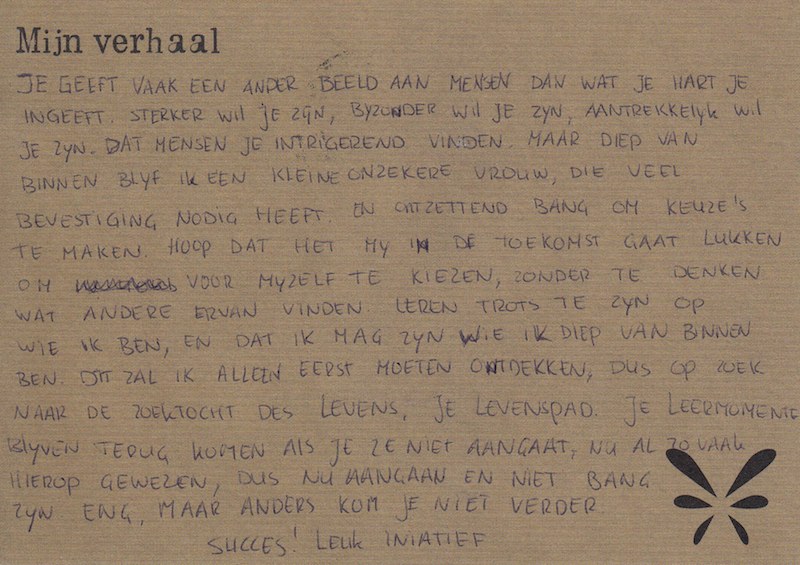 Mijn verhaal
JE GEEFT VAAK EEN ANDER BEELD AAN MENSEN DAN WAT JE HART JE
INGEEFT. STERKER WIL JE ZIJN, BYZONDER WIL JE ZYN, AANTREKKELYK WIL
JE ZYN. DAT MENSEN JE INTRIGEREND VINDEN. MAAR DIEP VAN
BINNEN BLYF IK EEN KLEINE ONZEKERE VROUW, DIE VEEL
BEVESTIGING NODIG HEEFT. EN ONTZETTEND BANG OM KEUZE'S
TE MAKEN. HOOP DAT HET MY IN DE TOEKOMST GAAT LUKKEN
OM VOOR MYZELF TE KIEZEN, ZONDER TE DENKEN
WAT ANDERE ERVAN VINDEN. LEREN TROTS TE ZYN OP
WIE IK BEN, EN DAT IK MAG ZYN WIE IK DIEP VAN BINNEN
BEN. DIT ZAL IK ALLEEN EERST MOETEN ONTDEKKEN, DUS OP ZOEK
NAAR DE ZOEKTOCHT DES LEVENS, JE LEVENSPAD. JE LEERMOMENTE
BLYVEN TERUG KOMEN ALS JE ZE NIET AANGAAT, NU AL ZO VAAK
HIEROP GEWEZEN, DUS NU AANGAAN EN NIET BANG
ZYN. ENG, MAAR ANDERS KOM JE NIET VERDER.
SUCCES! LEUK INIATIEF